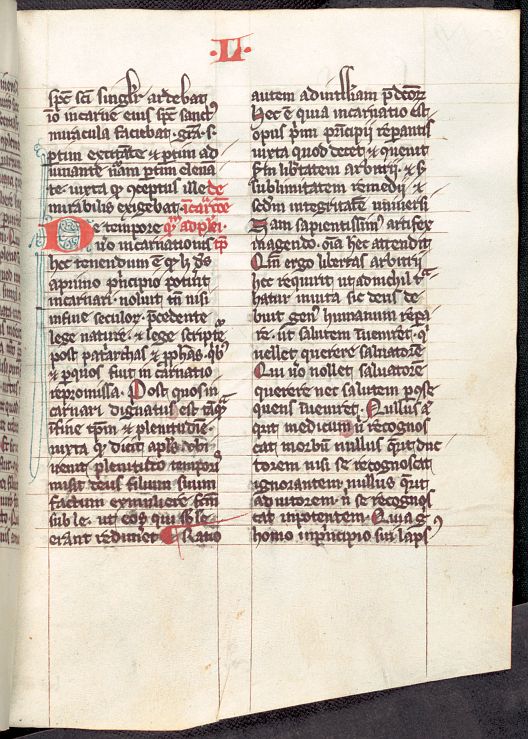 ·LI·
sp̄c sc̄i singl'r ardebat
iō in carne eius sp̄c sanct9
miracula faciebat · gr̄a · s ·
p̱tim excitāte ⁊ p̱tim ad
iuuante nām p̱tim eleua
te · iuxta qd̄ ꝯceptus ille de
mirabilis exigebat · incar̄cōne
De tempore qr̄ ad plei ·
u̇o incarnationis tp̄
hec tenendum ē qd̄ h̄ ds̄
a primo p̄ncipio potuit
incarnari · noluit tn̄ nisi
in fine seculor̄ p̄cedente
lege nature · ⁊ lege scripte
post patriarchas ⁊ ꝓphas · qb9
⁊ p̱ quos fuit in carnatio
repromissa · Post quos in
carnari dignatus est tāq̄
ī fine tp̄m ⁊ plenitudīe ·
iuxta qd̄ dicit apl̄s · Ubi
uenit plenitudo temporis
misit deus filium suum
factum ex muliere fcm̄
sub le · ut eos qui sb̄ le
erant redimeret · Ratio
autem ad
Hec ē quia incarnatio est
opus p̄mi p̄ncipii rep̱antis
iuxta quod decet ⁊ ꝯuenit
scd̄m lib̄tatem arbitrii · ⁊ s
sublimitatem remedii ⁊
sc̄dm integritatē uniuersi
Nam sapientissim9 artifex
in agendo · oīa hec attendit
Qm̄ ergo libertas arbitrii
hec requirit ut ad nichil t̄a
hatur inuita sic deus de
buit gen9 humanum repa
re · ut salutem īueniret · q
uellet querere saluatorē
Qui u̇o nollet saluatorē
querere nec salutem posse
quens īueniret · Nullus ā
qrit medicum nͥ recognos
cat morbū nullus qrit duc
torem nisi se recognoscat
ignorantem nullus qrit
adiutorem nͥ se recognos
cat inpotentem · Quia g
homo in p̄ncipio sui laps9